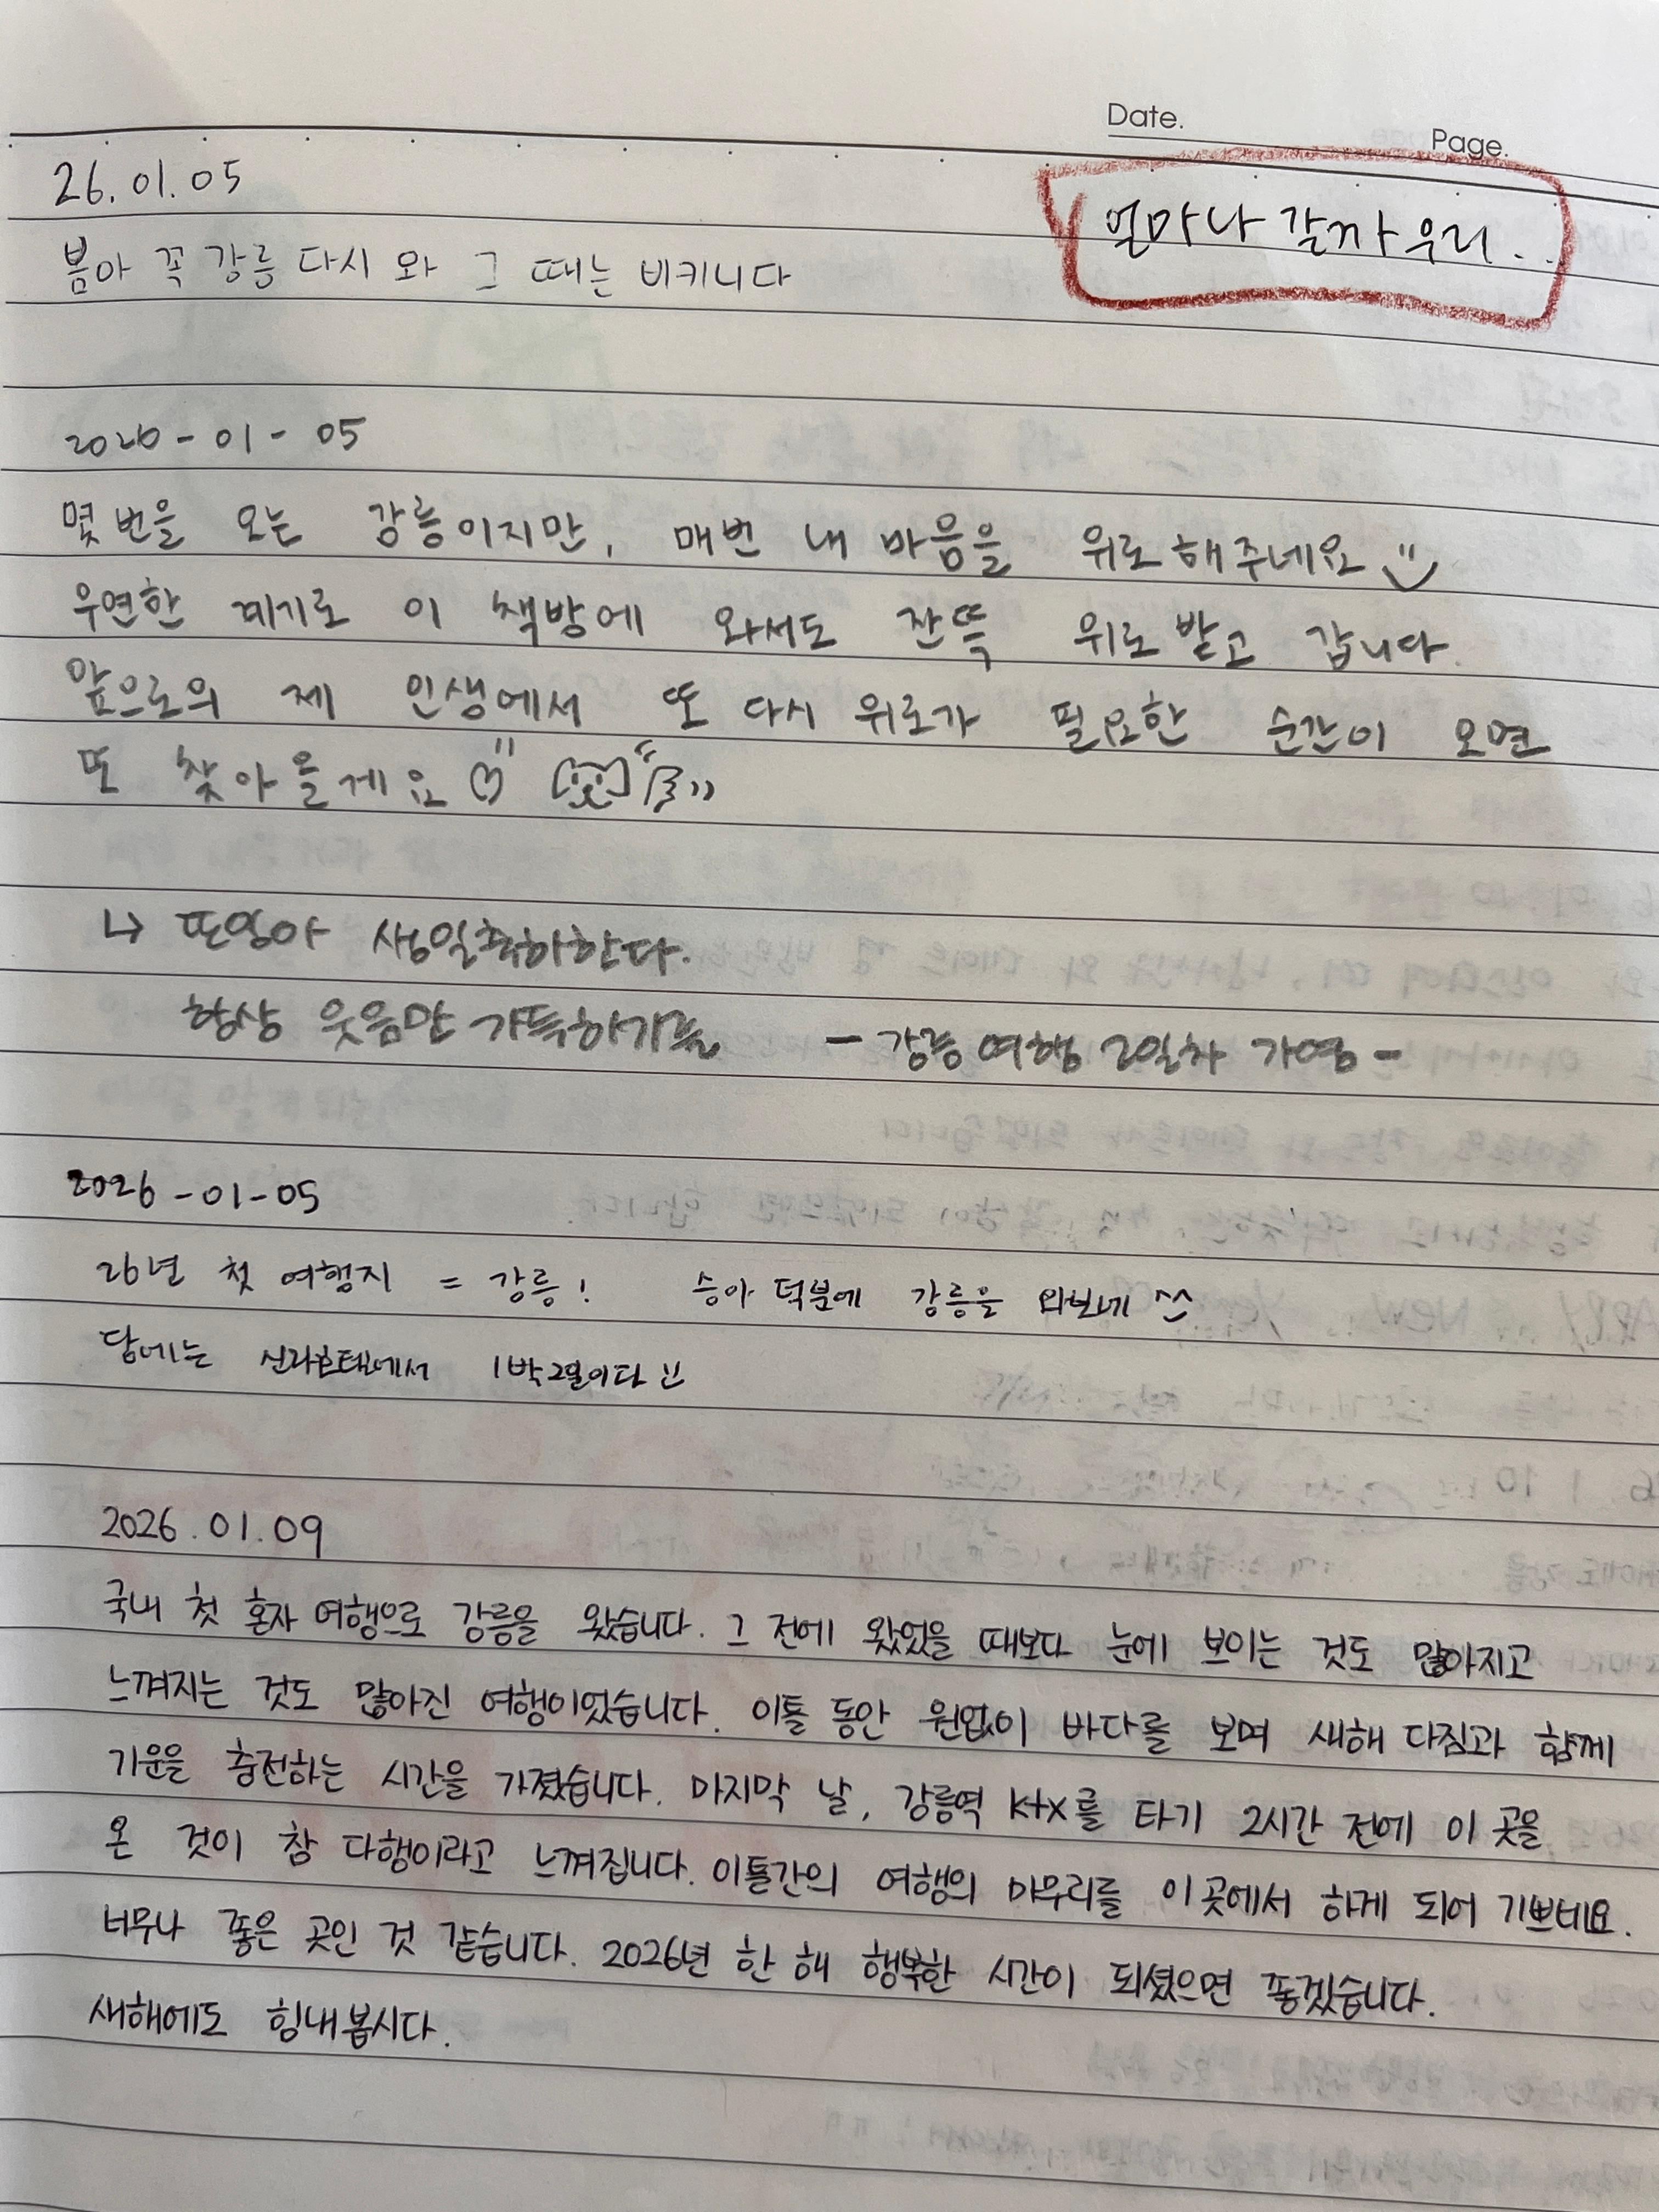 Date.
Page.
얼마나 갈까 우리..
26.01.05
봄아 꼭 강릉 다시 와 그 때는 비키니다
2026-01-05
몇번을 오는 강릉이지만, 매번 내 마음을 위로해주네요
우연한 계기로 이 책방에 와서도 잔뜩 위로 받고 갑니다.
앞으로의 제 인생에서 또 다시 위로가 필요한 순간이 오면
또 찾아올게요
↳ 또잉아 생일축하한다.
항상 웃음만 가득하기를 - 강릉여행 2일차 가영 -
2026-01-05
26년 첫 여행지 = 강릉! 승아 덕분에 강릉을 와보네 ^^
담에는 신라호텔에서 1박2일이다 !!
2026.01.09
국내 첫 혼자 여행으로 강릉을 왔습니다. 그 전에 왔었을 때보다 눈에 보이는 것도 많아지고
느껴지는 것도 많아진 여행이었습니다. 이틀 동안 원없이 바다를 보며 새해 다짐과 함께
기운을 충전하는 시간을 가졌습니다. 마지막 날, 강릉역 ktx를 타기 2시간 전에 이 곳을
온 것이 참 다행이라고 느껴집니다. 이틀간의 여행의 마무리를 이 곳에서 하게 되어 기쁘네요.
너무나 좋은 곳인 것 같습니다. 2026년 한 해 행복한 시간이 되셨으면 좋겠습니다.
새해에도 힘내봅시다.